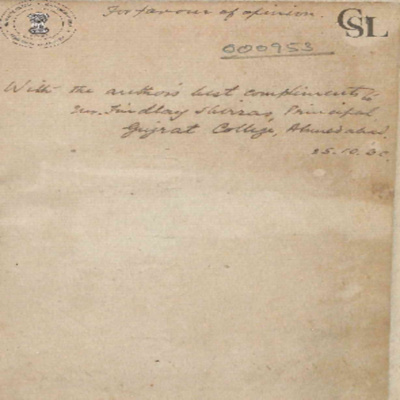 For favour of opinion.
CSL
000953
With the author's best compliments to
Findlay Shirras, Principal
Gujrat College, Ahmedabad.